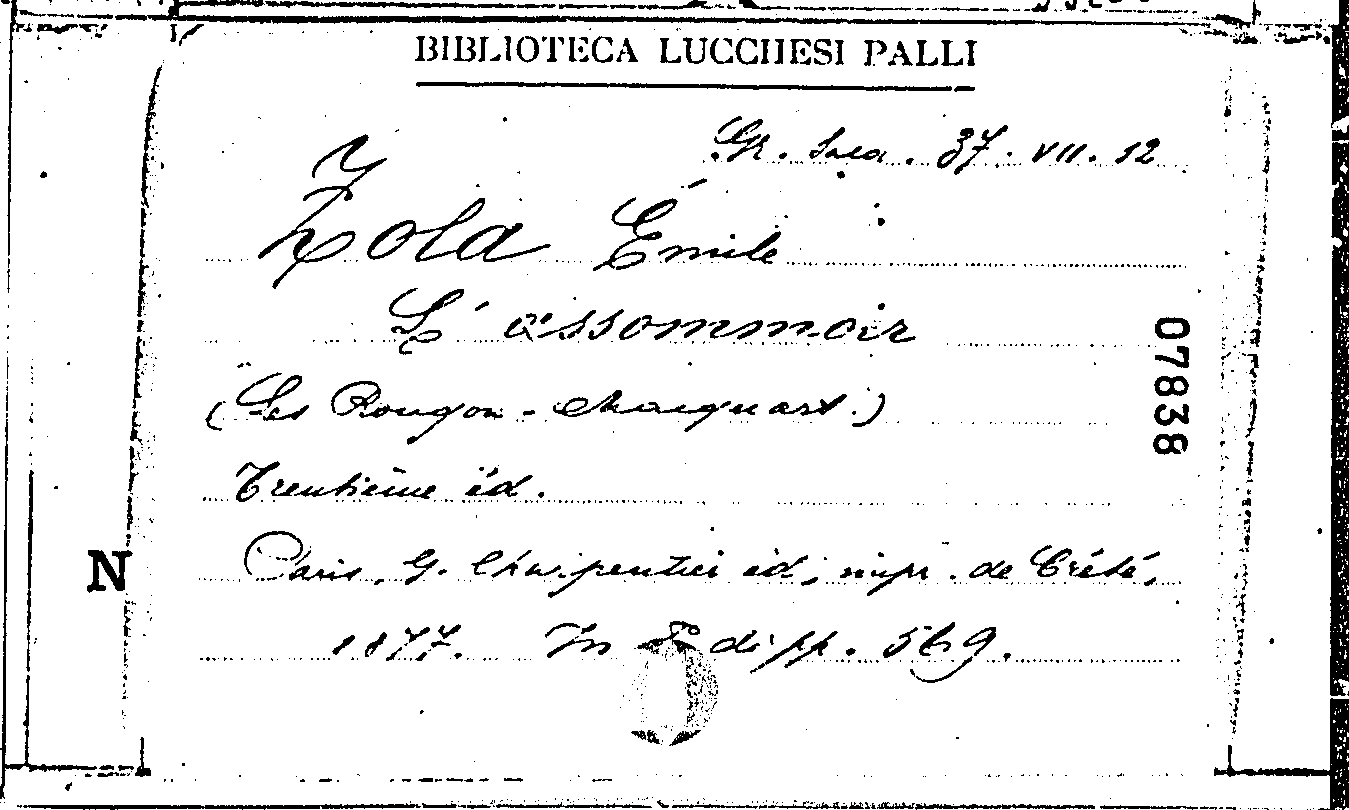 BIBLIOTECA LUCCHESI PALLI
Gr. Sala. 37. VII. 12
Zola Émile
L'assommoir
(Les Rougon-Macquart.)
Trentième éd.
Paris, G. Charpentier éd, impr. de Crété,
1877. In 8° di pp. 569.
07838
N